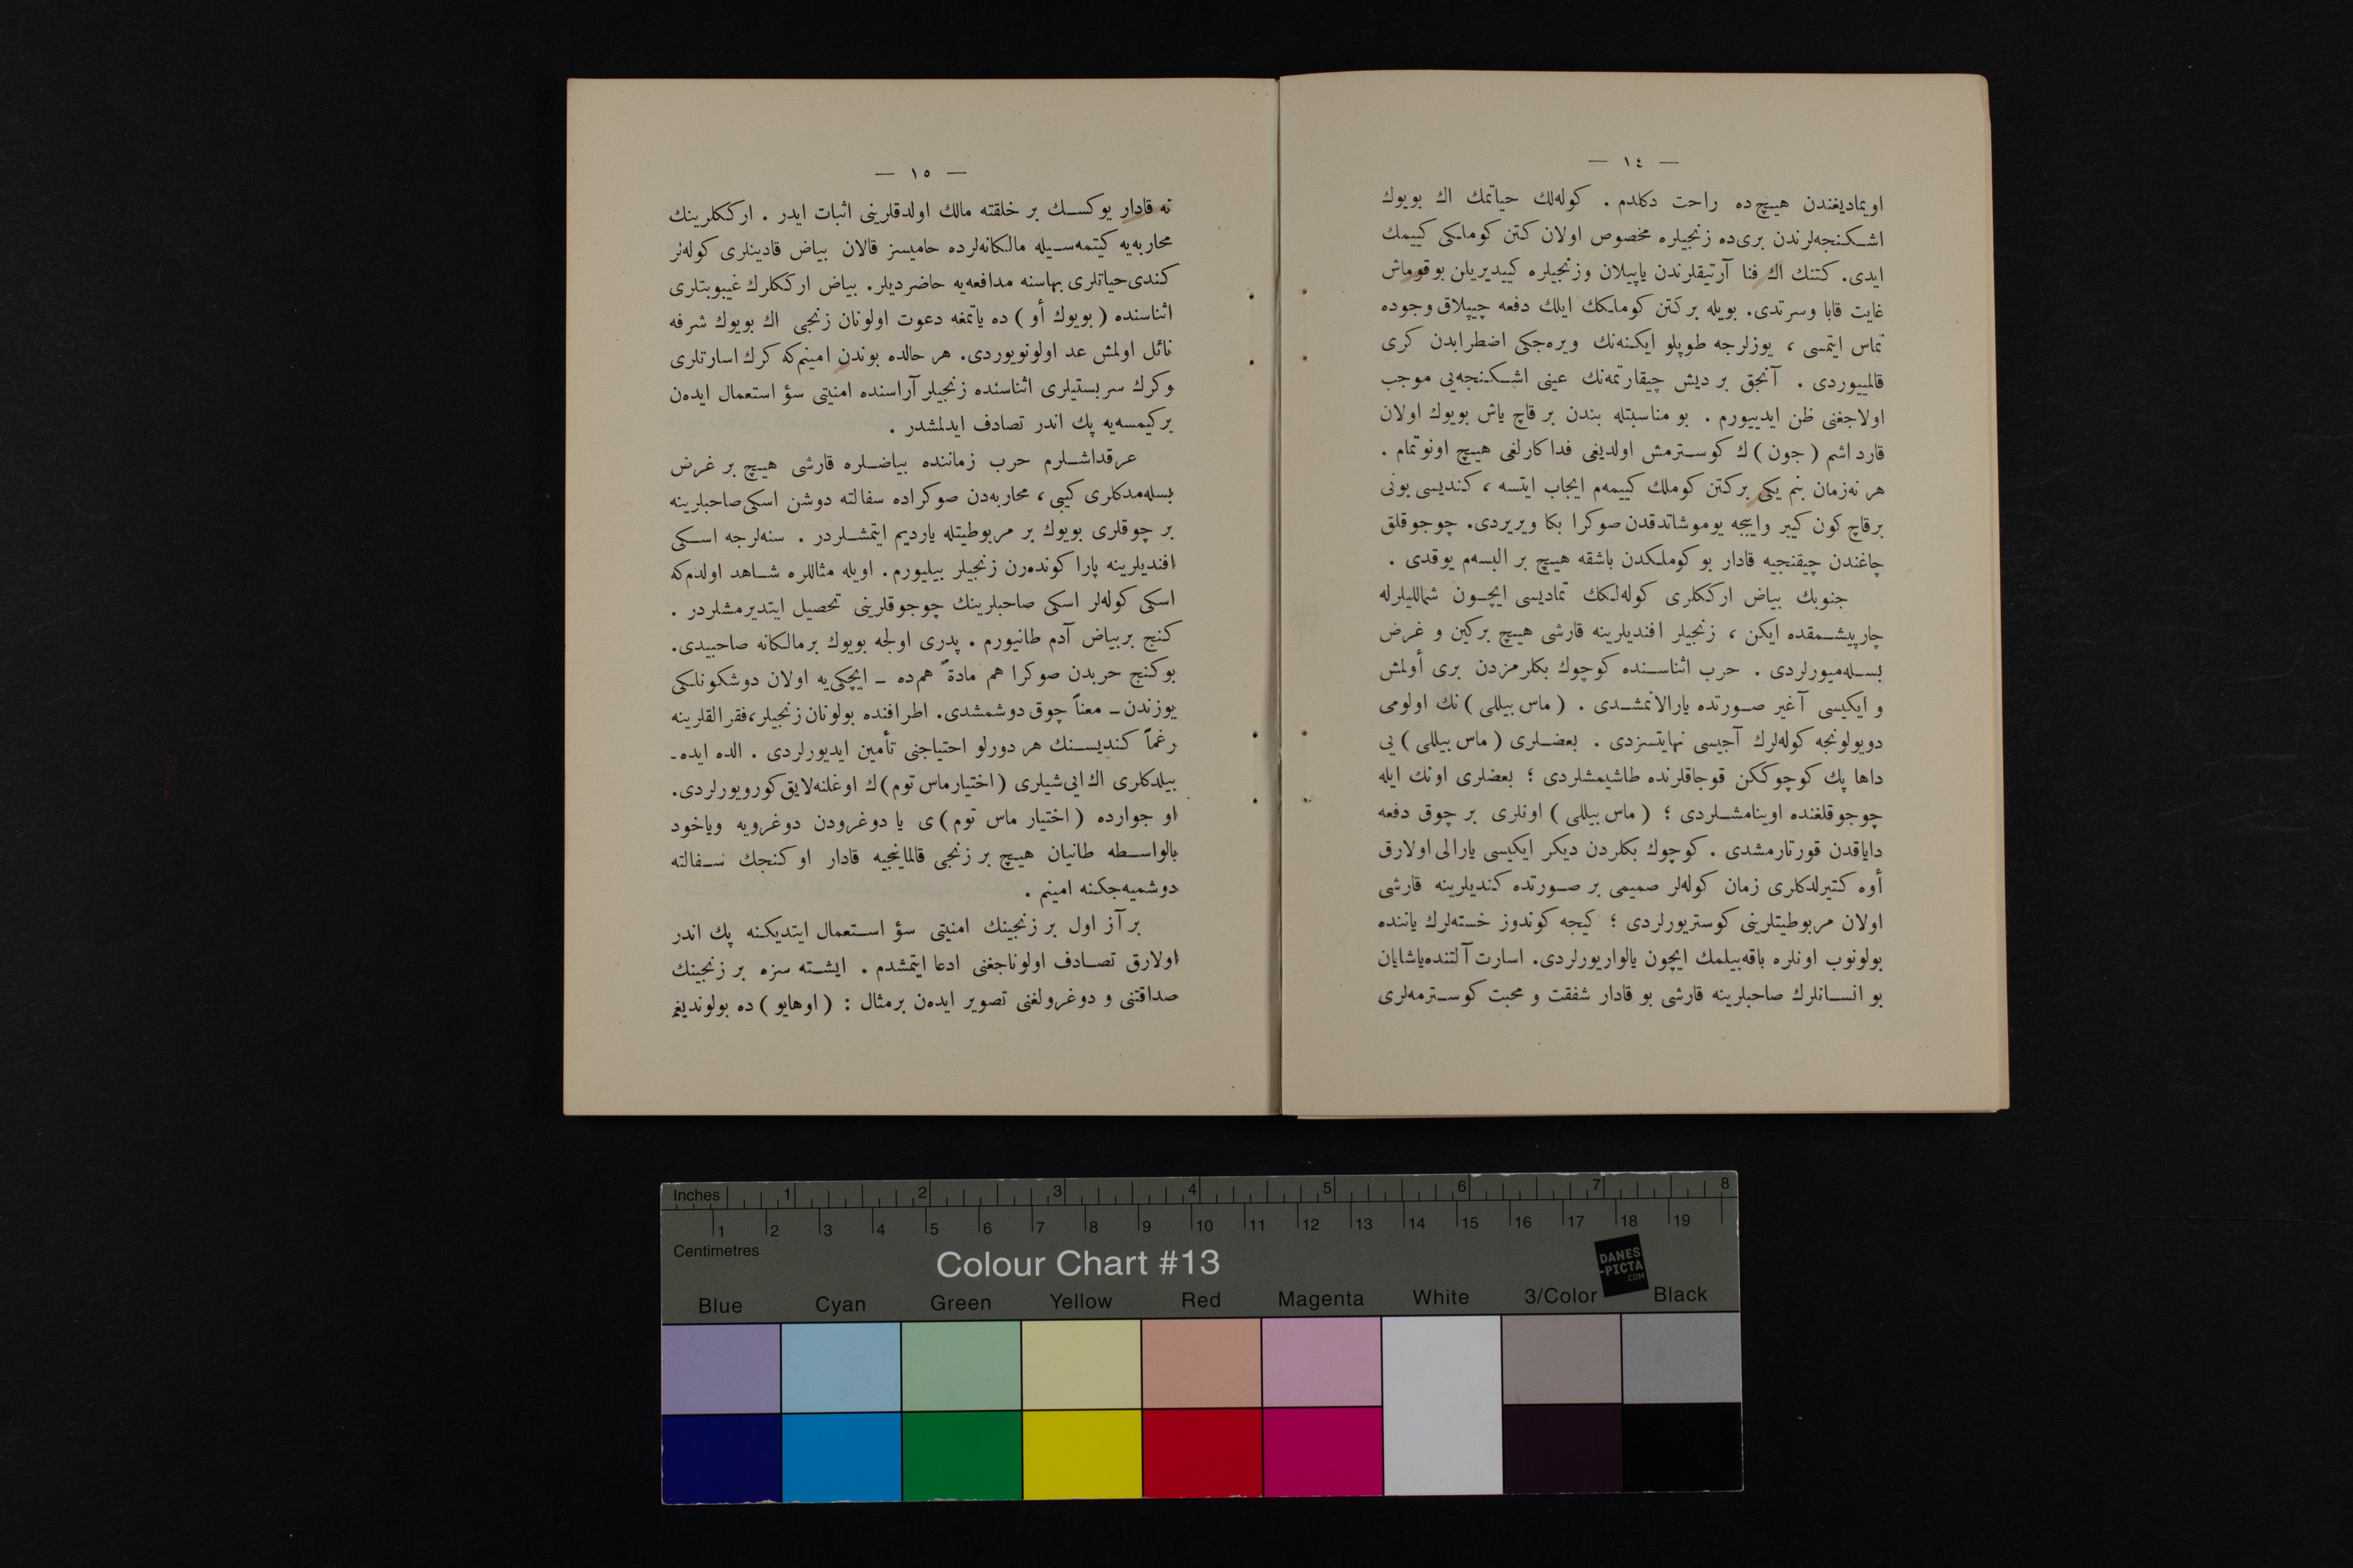 — ١٤ —
اويماديغندن هيچ ده راحت دكلدم . كوله‌لك حياتمك اك بويوك
اشكنجه‌لرندن برى‌ده زنجيلره مخصوص اولان كتن كوملكى كييمك
ايدى. كتنك اك فنا آرتيقلرندن ياپيلان وزنجيلره كييديريلن بوقوماش
غايت قابا وسرتدى. بويله بركتن كوملكك ايلك دفعه چيپلاق وجوده
تماس ايتمسى ، يوزلرجه طوپلو ايكنه‌نك ويره‌جكى اضطرابدن كرى
قالمييوردى . آنجق بر ديش چيقارتمه‌نك عينى اشكنجه‌يى موجب
اولاجغنى ظن ايدييورم . بو مناسبتله بندن بر قاچ ياش بويوك اولان
قارداشم (جون)ك كوسترمش اولديغى فداكارلغى هيچ اونوتمام .
هر نه‌زمان بنم يكى بركتن كوملك كييمه‌م ايجاب ايتسه ، كنديسى بونى
برقاچ كون كيير وايیجه يوموشاتدقدن صوكرا بكا ويريردى. چوجوقلق
چاغندن چيقنجيه قادار بو كوملكدن باشقه هيچ بر البسه‌م يوقدى .
جنوبك بياض ارككلرى كوله‌لكك تماديسى ايچون شماليلرله
چارپيشمقده ايكن ، زنجيلر افنديلرينه قارشى هيچ بركين و غرض
بسله‌ميورلردى . حرب اثناسنده كوچوك بكلرمزدن برى أولمش
و ايكيسى آغير صورتده يارالانمشدى . (ماس بيللى) نك اولومى
دويولونجه كوله‌لرك آجيسى نهايتسزدى . بعضلرى (ماس بيللى) يى
داها پك كوچوككن قوجاقلرنده طاشيمشلردى ؛ بعضلرى اونك ايله
چوجوقلغنده اوينامشلردى ؛ (ماس بيللى) اونلرى بر چوق دفعه
داياقدن قورتارمشدى . كوچوك بكلردن ديكر ايكيسى يارالى اولارق
أوه كتيرلدكلرى زمان كوله‌لر صميمى بر صورتده كنديلرينه قارشى
اولان مربوطيتلرينى كوستريورلردى ؛ كيجه كوندوز خسته‌لرك ياننده
بولونوب اونلره باقه‌بيلمك ايچون يالواريورلردى. اسارت آلتنده ياشايان
بو انسانلرك صاحبلرينه قارشى بو قادار شفقت و محبت كوسترمه‌لرى
— ١٥ —
نه قادار يوكسك بر خلقته مالك اولدقلرينى اثبات ايدر . اركلرينك
محاربه‌يه كيتمه‌سيله مالكانه‌لرده حاميسز قالان بياض قادينلرى كوله‌لر
كندى حياتلرى بهاسنه مدافعه‌يه حاضرديلر. بياض اركلرك غيبوبتلرى
اثناسنده (بويوك أو) ده ياتمغه دعوت اولونان زنجى اك بويوك شرفه
نائل اولمش عد اولونويوردى. هر حالده بوندن امينم‌كه كرك اسارتلرى
وكرك سربستيلرى اثناسنده زنجيلر آراسنده امنيتى سؤ استعمال ايده‌ن
بركيمسه‌يه پك اندر تصادف ايدلمشدر .
عرقداشلرم حرب زماننده بياضلره قارشى هيچ بر غرض
بسله‌مدكلرى كيبى ، محاربه‌دن صوكراده سفالته دوشن اسكى صاحبلرينه
بر چوقلرى بويوك بر مربوطيتله يارديم ايتمشلردر . سنه‌لرجه اسكى
افنديلرينه پارا كونده‌رن زنجيلر بيليورم . اويله مثاللره شاهد اولدم‌كه
اسكى كوله‌لر اسكى صاحبلرينك چوجوقلرينى تحصيل ايتديرمشلردر .
كنج بربياض آدم طانيورم . پدرى اولجه بويوك برمالكانه صاحبيدى.
بوكنج حربدن صوكرا هم مادةً هم‌ده ـ ايچكى‌يه اولان دوشكونلكى
يوزندن ـ معناً چوق دوشمشدى. اطرافنده بولونان زنجيلر،فقرالقلرينه
رغماً كنديسنك هر دورلو احتياجنى تأمين ايديورلردى . الده ايده‌ـ
بيلدكلرى اك ايى شيلرى (اختيارماس توم)ك اوغلنه‌لايق كورويورلردى.
او جوارده (اختيار ماس توم)ى يا دوغرودن دوغرويه وياخود
بالواسطه طانيان هيچ بر زنجى قالماينجيه قادار او كنجك سفالته
دوشميه‌جكنه امينم .
بر آز اول بر زنجينك امنيتى سؤ استعمال ايتديكنه پك اندر
اولارق تصادف اولوناجغنى ادعا ايتمشدم . ايشته سزه بر زنجينك
صداقتنى و دوغرولغنى تصوير ايده‌ن برمثال : (اوهايو) ده بولونديغم
Inches 1 2 3 4 5 6 7 8
1 2 3 4 5 6 7 8 9 10 11 12 13 14 15 16 17 18 19
Centimetres
Colour Chart #13
DANES
-PICTA
.COM
Blue Cyan Green Yellow Red Magenta White 3/Color Black